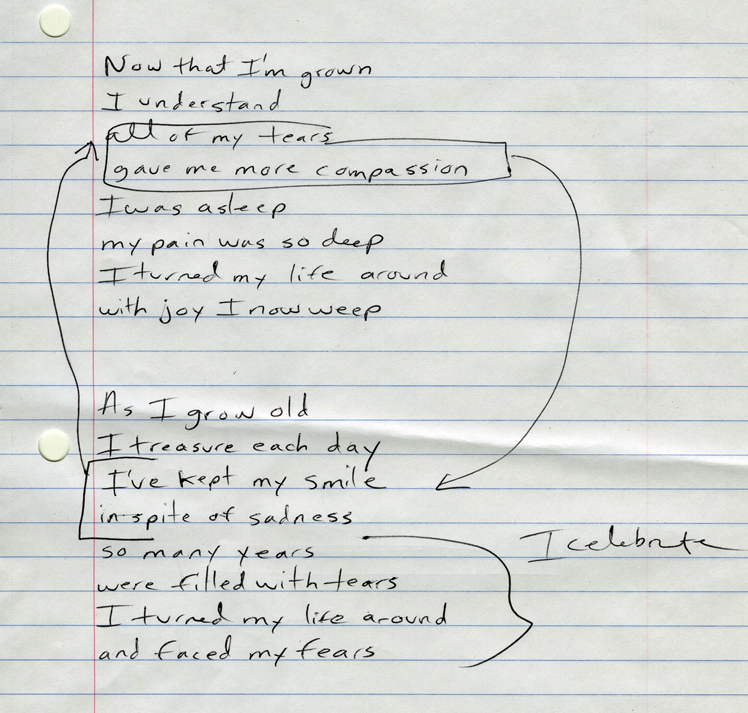 Now that I'm grown
I understand
all of my tears
gave me more compassion
I was asleep
my pain was so deep
I turned my life around
with joy I now weep
As I grow old
I treasure each day
I've kept my smile
in spite of sadness
so many years
were filled with tears
I turned my life around
and faced my fears
I celebrate